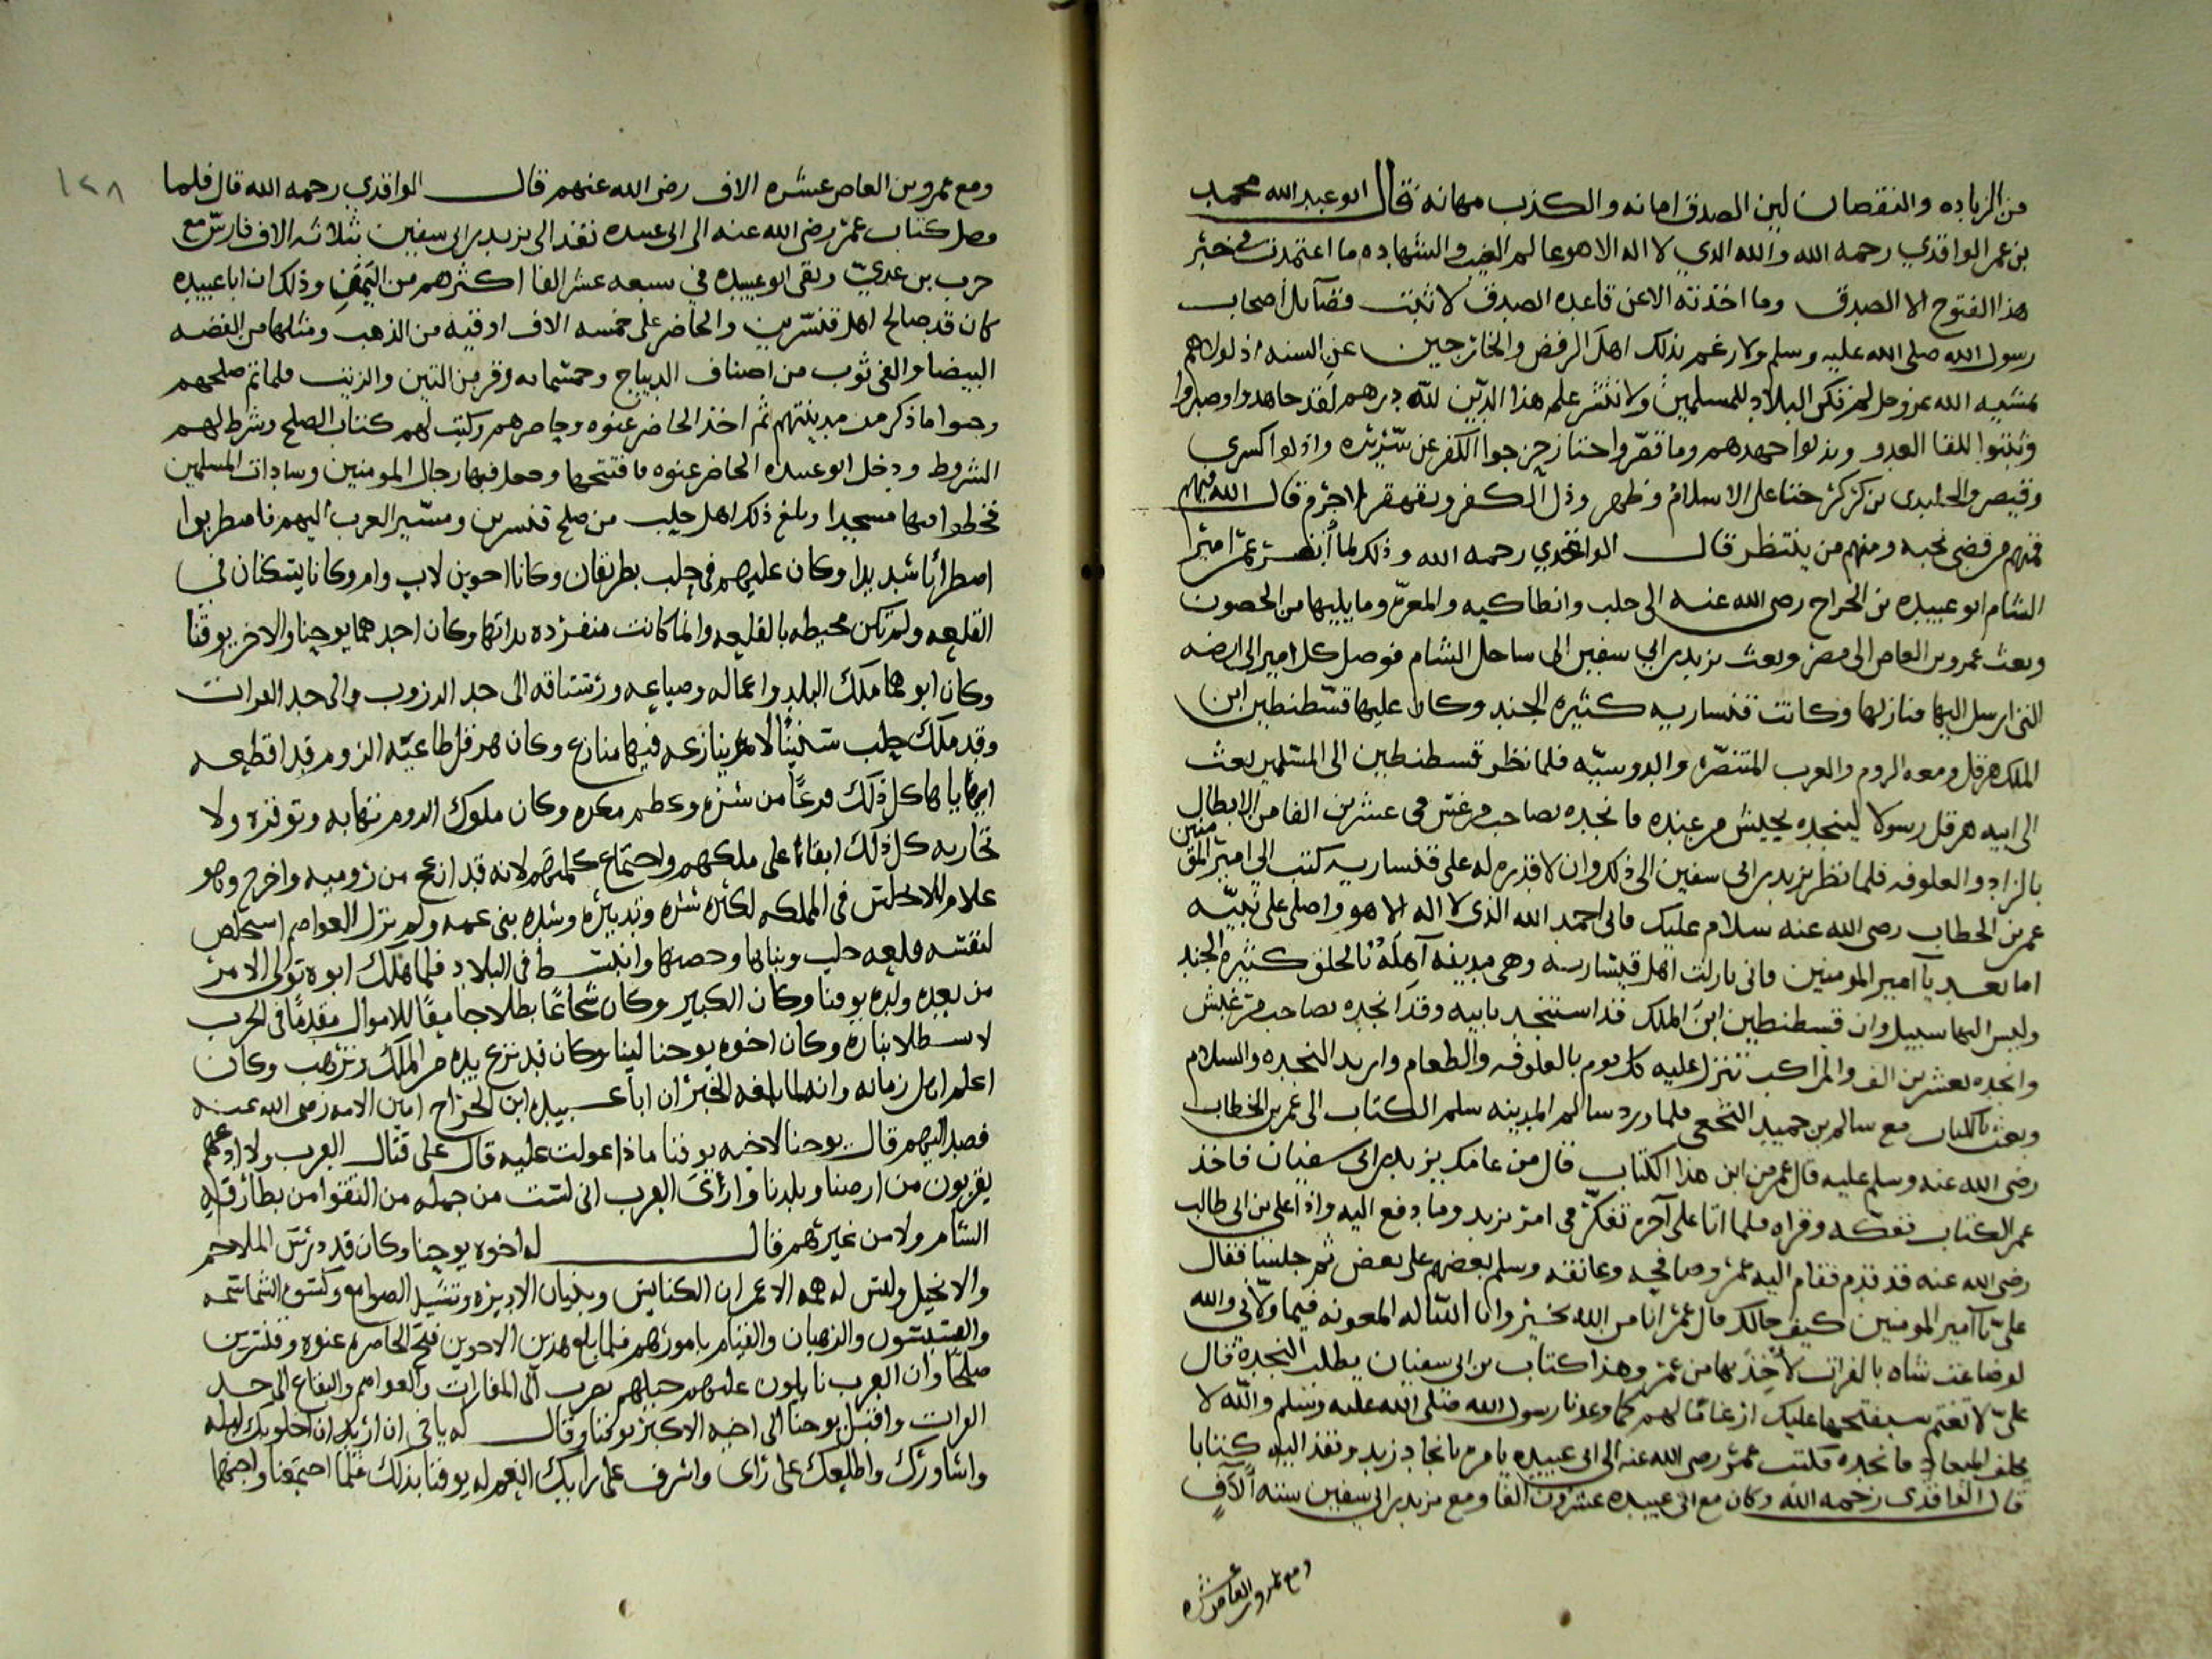 من الزياده والنقصان لين الصدق امانه والكذب مهانه قال ابو عبد الله محمد
بن عمر الواقدي رحمه الله والله الدي لا اله الا هو عالم الغيب والشهاده ما اعتمدت في خبر
هذا الفتوح الا الصدق وما اخذته الا عن قاعده الصدق لا ثبت فضآيل أصحاب
رسول الله صلى الله عليه وسلم ولا رغم بذلك اهل الرفض والخارجين عن السنه اذ لولاهم
بمشيه الله عز وجل لم تكن البلاد للمسلمين ولا نتشر علم هذا الدين لله درهم لقد جاهدوا وصبروا
وثبتوا للقا العدو وبذلوا جهدهم وما قصروا حتا زحزحوا الكفر عن سريره واذلوا كسرى
وقيصر والجلندى بن كركر حتا على الاسلام وظهر وذل الكفر وتقهقر لا جرم قال الله فيهم
فمنهم من قضى نحبه ومنهم من ينتظر قال الواقدي رحمه الله وذلك لما عمر امير
الشام ابو عبيده بن الجراح رضى الله عنه الى حلب وانطاكيه والمعره وما يليها من الحصون
وبعث عمرو بن العاص الى مصر وبعث يزيد بن ابي سفين الى ساحل الشام فوصل كل امير الى ارضه
التى ارسل اليها فنازلها وكانت قنساريه كثيره الجند وكان عليها قسطنطين ابن
الملك هرقل ومعه الروم والعرب المتنصره والدوسيه فلما نظر قسطنطين الى المسلمين بعث
الى ابيه هرقل رسولا لينجده بجيش من عنده فانجده بصاحب مرعش في عشرين الفا من الابطال
بالزاد والعلوفه فلما نظر يزيد بن ابى سفين الى ذلك وان لا قدره له على قنساريه كتب الى امير المؤمنين
عمر بن الخطاب رضى الله عنه سلام عليك فانى احمد الله الذى لا اله الا هو واصلى على نبيه
اما بعد يآ امير المومنين فانى نازلت اهل قيساريه وهى مدينه آهله بالخلق كثيره الجند
وليس اليها سبيل وان قسطنطين ابن الملك قد استنجد بابيه وقد انجده بصاحب مرعش
وانجده بعشرين الف والمراكب تنزل عليه كل يوم بالعلوفه والطعام واريد النجده والسلام
وبعث بالكتاب مع سالم بن حميد النخعى فلما ورد سالم المدينه سلم الكتاب الى عمر بن الخطاب
رضى الله عنه وسلم عليه قال عمر من اين هذا الكتاب قال من عاملك يزيد بن ابى سفيان فاخذ
عمر الكتاب ففكه وقراه فلما اتا على آخره تفكر في امر يزيد وما دفع اليه واذا على بن ابى طالب
رضى الله عنه قد قدم فقام اليه عمر وصافحه وعانقه وسلم بعضهم على بعض ثم جلسا فقال
على يآ امير المومنين كيف حالك قال عمر انا من الله بخير وانا اساله المعونه فيما ولانى والله
لو ضاعت شاه بالفرات لأخذ بها من عمر وهذا كتاب بن ابى سفيان يطلب النجدة قال
على لا تغتم سيفتحها عليك ازغامًا لهم كما وعدنا رسول الله صلى الله عليه وسلم والله لا
يخلف الميعاد فانجده فكتب عمر رضى الله عنه الى ابى عبيده يامره بانجاد يزيد ونفذ اليه كتابا
قال الواقدى رحمه الله وكان مع ابى عبيده عشرون الفا ومع يزيد بن ابى سفين سته آلاف
ومع عمرو بن العاص عشره
١٢٨
ومع عمرو بن العاص عشره الاف رضى الله عنهم قال الواقدي رحمه الله قال فلما
وصل كتاب عمر رضى الله عنه الى ابى عبيده نفذ الى يزيد بن ابى سفين ثلاثه الاف فارس مع
حرب بن عدي وبقى ابو عبيده في سبعه عشر الفا اكثرهم من اليمن وذلك ان ابا عبيده
كان قد صالح اهل قنسرين والحاضر على خمسه الاف اوقيه من الذهب ومثلها من الفضه
البيضا والفى ثوب من اصناف الديباج وخمسمايه وقر من التين والزيت فلما تم صلحهم
وجبوا ما ذكر من مدينتهم ثم اخذ الحاضر عنوه وحاصرهم وكتب لهم كتاب الصلح وشرط لهم
الشروط ودخل ابو عبيده الحاضر عنوه فافتتحها وجعل فيها رجال المومنين وسادات المسلمين
فخطوا فيها مسجدا وبلغ ذلك اهل حلب من صلح قنسرين ومسير العرب اليهم فاضطربوا
اضطرابا شديدا وكان عليهم في حلب بطريقان وكانا اخوين لاب وام وكانا يسكنان في
القلعه ولم تكن محيطه بالقلعه وانما كانت منفرده بذاتها وكان احدهما يوحنا والاخر يوقنا
وكان ابوهما ملك البلد واعماله وضياعه ورستاقه الى حد الدروب والى حد الفرات
وقد ملك حلب سنينًا لا ينازعه فيها منازع وكان هرقل طاغيه الروم قد اقطعه
اياها كل ذلك فزعًا من شره وعظم مكره وكان ملوك الروم تهابه وتوقره ولا
تحاربه كل ذلك ابقاءًا على ملكهم واجتماع كلمتهم لانه قد انزعج من روميه واخرج وهو
غلام في المملكه لكثره شره وتدبيره وشده بنى عمه ولم نزل العواصم استخلص
لنفسه قلعه حلب وبناها وحصنها وانبسط في البلاد فلما هلك ابوه تولى الامر
من بعده ولده يوقنا وكان الكبير وكان شجاعًا بطلا جامعًا للاموال مقدمًا في الحرب
لا يسطلا بناره وكان اخوه يوحنا لينا وكان قد نزع يده من الملك وترهب وكان
اعلم اهل زمانه وانه لما بلغه الخبر ان ابا عبيده ابن الجراح امين الامه رضى الله عنه
قصد اليهم قال يوحنا لاخيه يوقنا ماذا عولت عليه قال على قتال العرب ولا ادعهم
يقربون من ارضنا وبلدنا وارى العرب انى لست من جمله من التقوا من بطارقه
الشام ولا من غيرهم قال له اخوه يوحنا وكان قد درس الملاحم
والانجيل وليس له همه الا عمران الكنايس وبنيان الاديره وتشييد الصوامع وكسوه الشمامسه
والقسيسون والرهبان والقيام بامورهم فلما بلغ هذين الاخوين فتح الحاضره عنوه وقنسرين
صلحًا وان العرب نازلون عليهم خيلهم تضرب الى المغارات والعواصم والبقاع الى حد
الفرات واقبل يوحنا الى اخيه الاكبر يوقنا وقال له ياخى ان اريد ان اخلو بك ليله
واشاورك واطلعك على راى واشرف على رايك انعم له يوقنا بذلك فلما اجتمعنا واجمعها